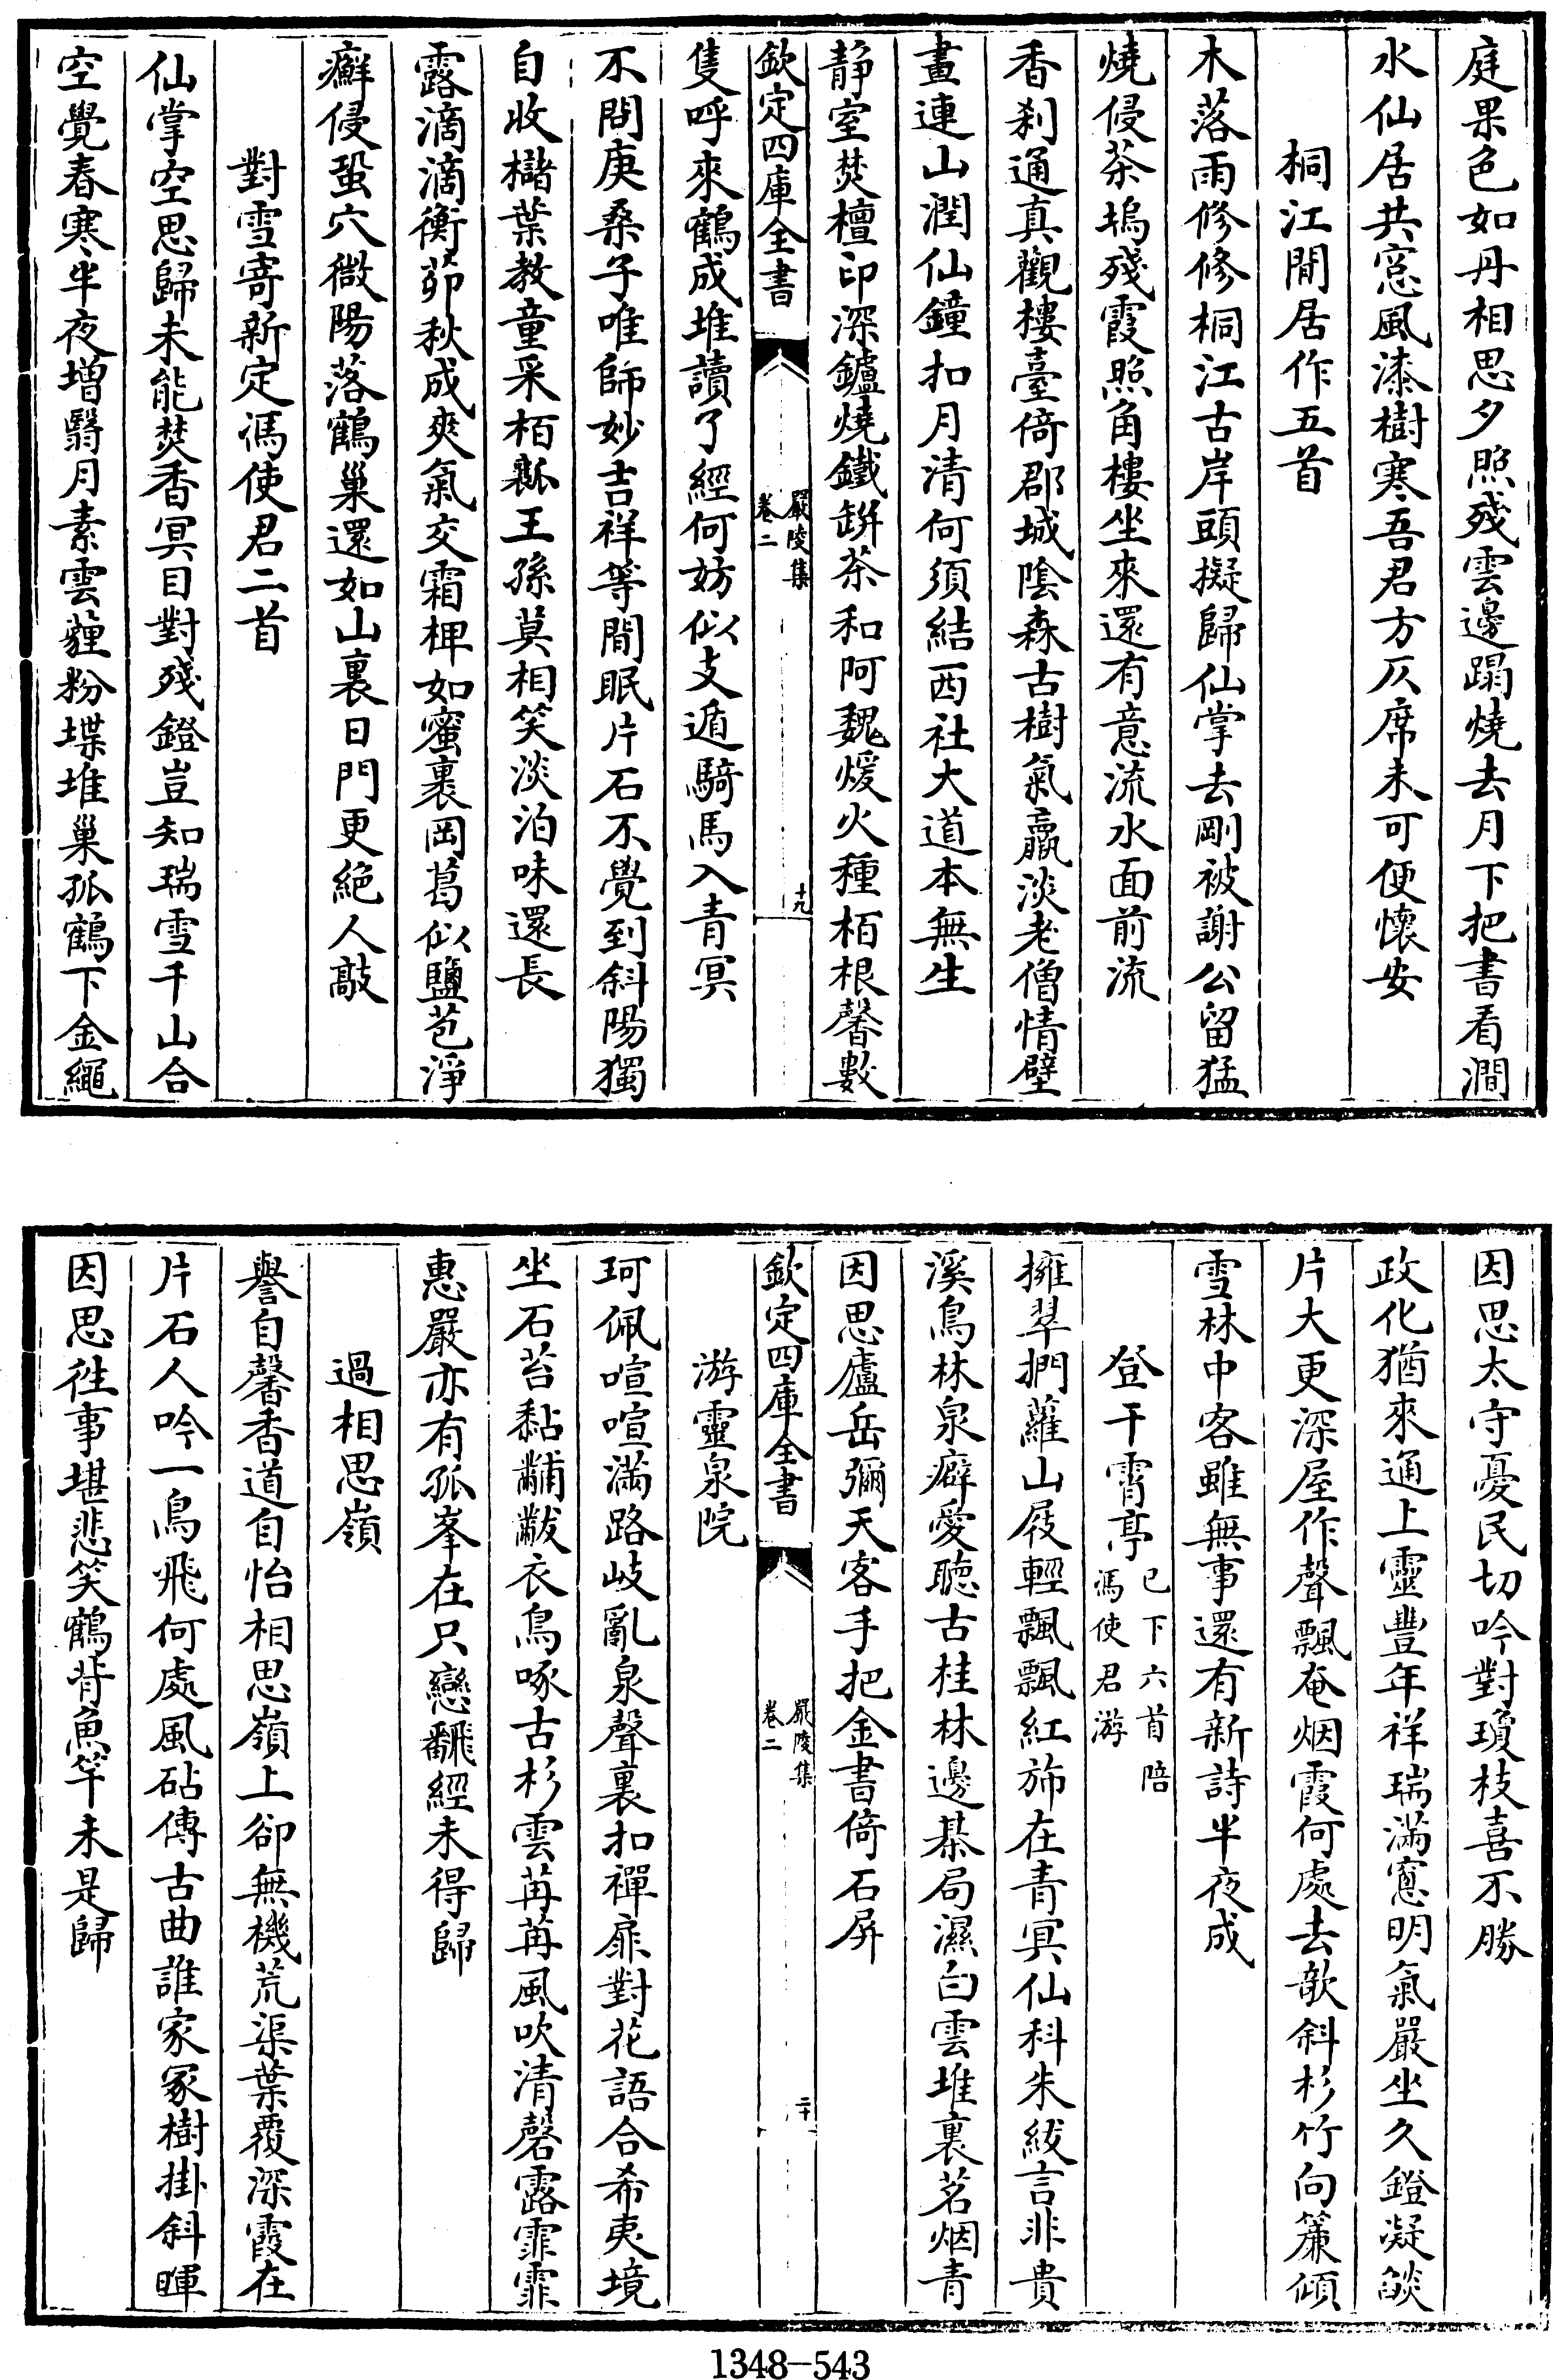 庭果色如丹相思夕照殘雲邊蹋燒去月下把書看澗
水仙居共窓風漆樹寒吾君方仄席未可便懷安
桐江閒居作五首
木落雨修修桐江古岸頭擬歸仙掌去剛被謝公留猛
燒侵茶塢殘霞照角樓坐來還有意流水面前流
香刹通真觀樓臺倚郡城陰森古樹氣羸淡老僧情壁
畫連山潤仙鐘扣月清何須結西社大道本無生
静室焚檀印深鑪燒鐵缾茶和阿魏煖火種栢根馨數
欽定四庫全書
嚴陵集
卷二
十九
隻呼來鶴成堆讀了經何妨似支遁騎馬入青冥
不問庚桑子唯師妙吉祥等閒眠片石不覺到斜陽獨
自收櫧葉教童采栢瓤王孫莫相笑淡泊味還長
露滴滴蘅茆秋成爽氣交霜椑如蜜裹岡葛似鹽苞淨
癬侵蛩穴微陽落鶴巢還如山裏日門更絕人敲
對雪寄新定馮使君二首
仙掌空思歸未能焚香冥目對殘鐙豈知瑞雪千山合
空覺春寒半夜增翳月素雲薶粉堞堆巢孤鶴下金繩
因思太守憂民切吟對瓊枝喜不勝
政化猶來通上靈豐年祥瑞滿窻明氣嚴坐久鐙凝燄
片大更深屋作聲飄奄烟霞何處去欹斜杉竹向簾傾
雪林中客雖無事還有新詩半夜成
登干霄亭
已下六首陪
馮使君游
擁翠捫蘿山屐輕飄飄紅斾在青冥仙科朱紱言非貴
溪鳥林泉癖愛聽古桂林邊棊局濕白雲堆裏茗烟青
因思廬岳彌天客手把金書倚石屏
欽定四庫全書
嚴陵集
卷二
二十
游靈泉院
珂佩喧喧滿路岐亂泉聲裏扣禪扉對花語合希夷境
坐石苔黏黼黻衣鳥啄古杉雲苒苒風吹清磬露霏霏
惠嚴亦有孤峯在只戀翻經未得歸
過相思嶺
譽自馨香道自怡相思嶺上卻無機荒渠葉覆深霞在
片石人吟一鳥飛何處風砧傳古曲誰家冢樹掛斜暉
因思徃事堪悲笑鶴背魚竿未是歸
1348-543